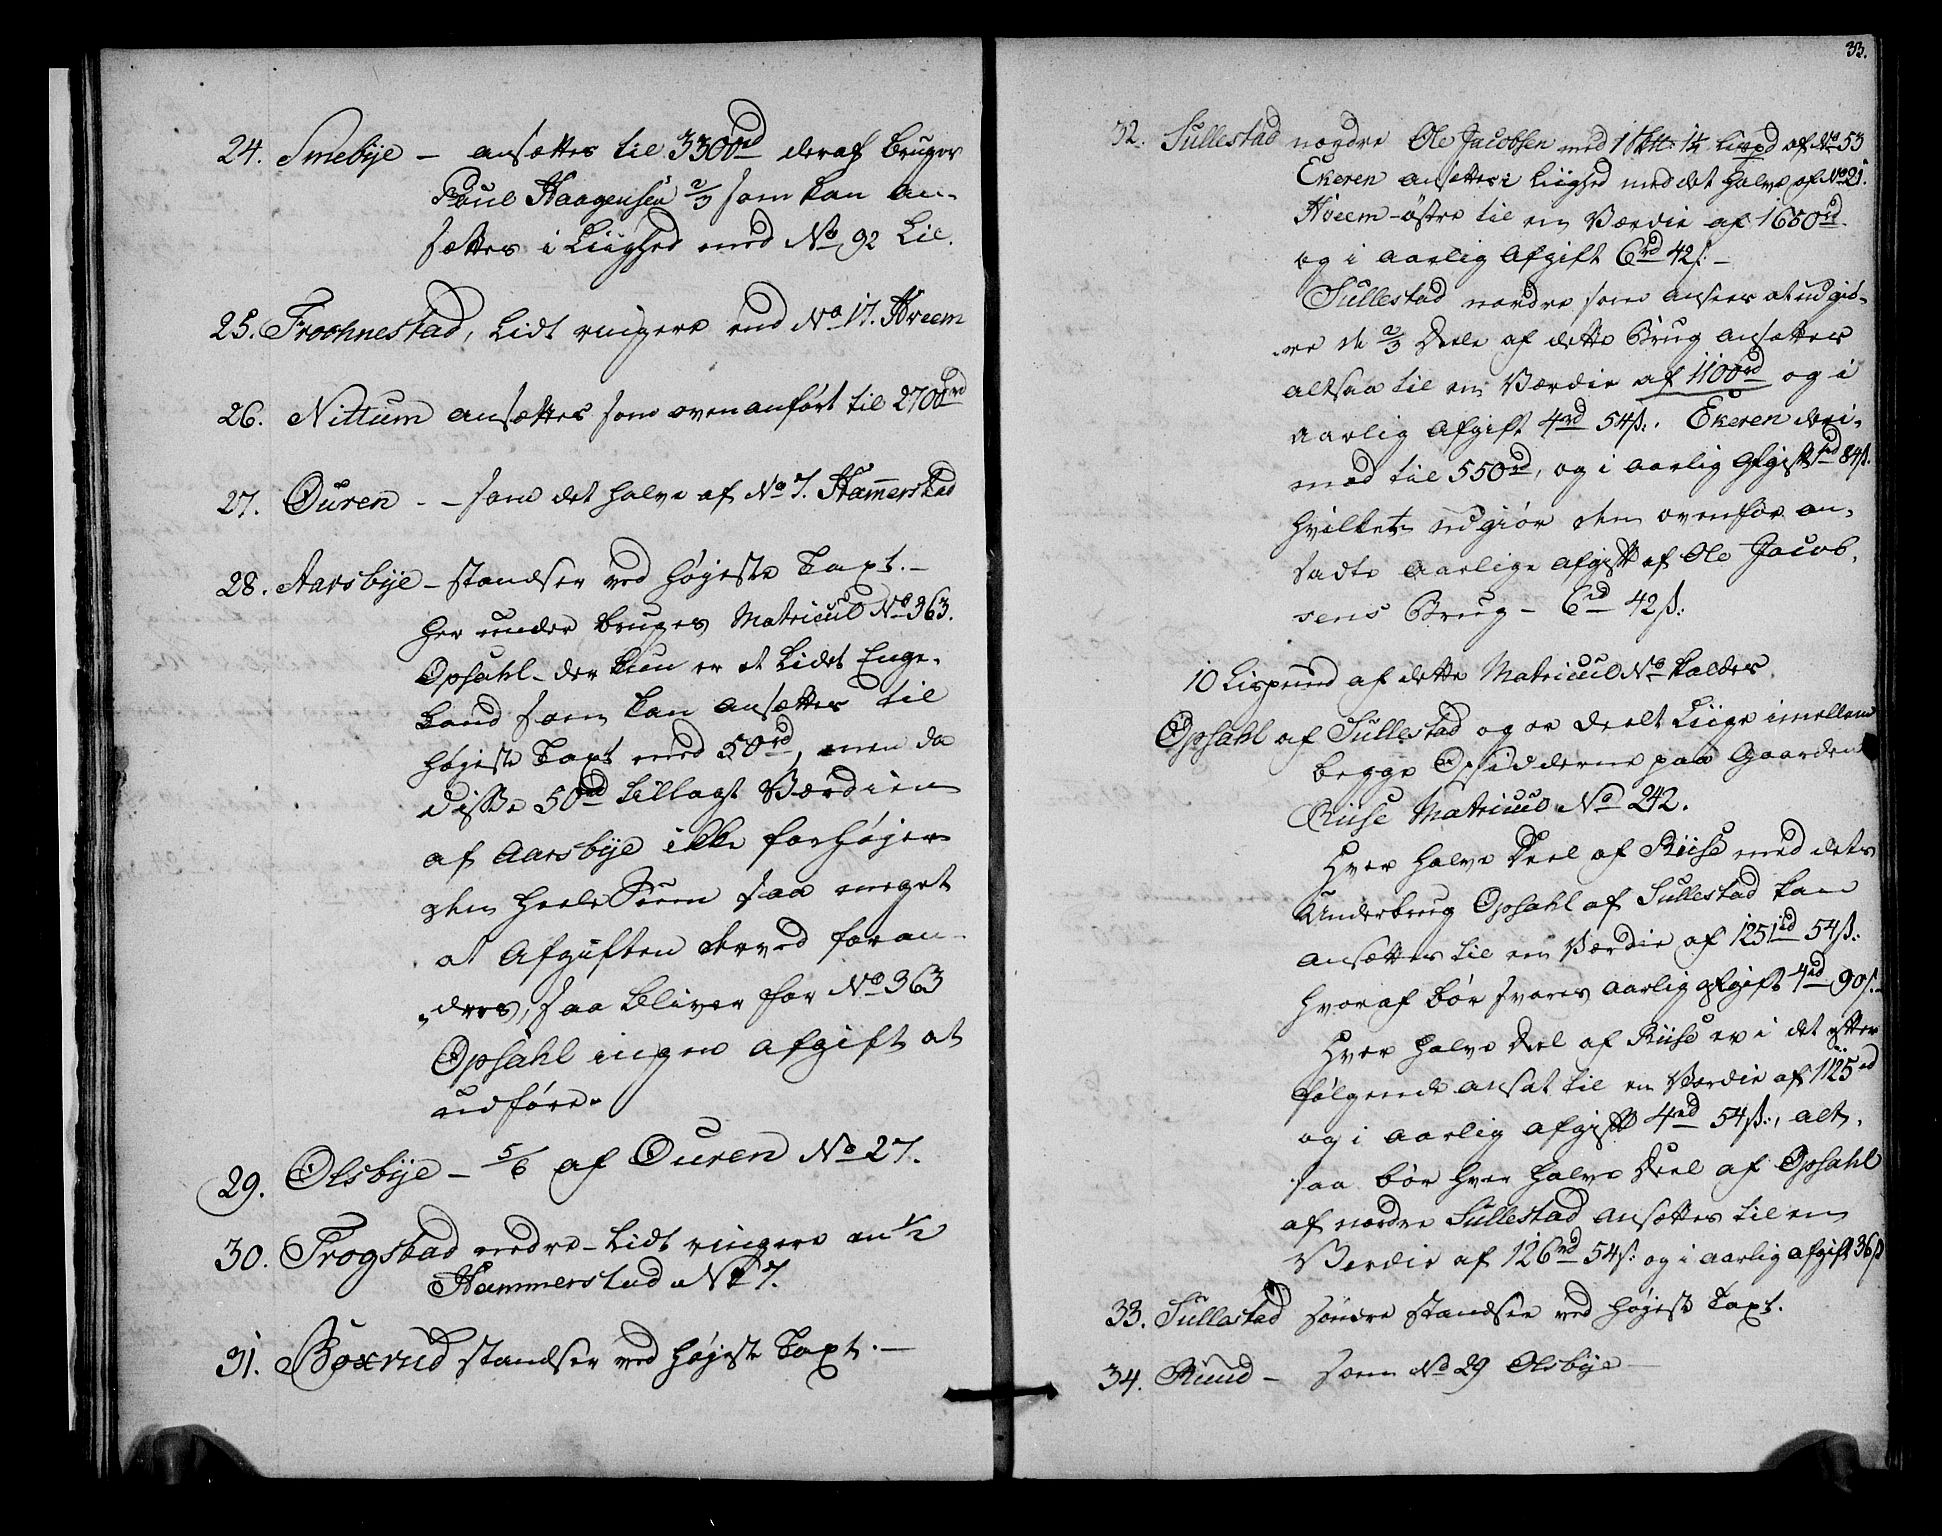 24. Smebÿe – ansættes til 3300rd deraf bruger
Poul Haagensen 2/3 som kan an-
sættes i Liighed med No 92 Lie.
25. Frochnestad, lidt ringere end No 17. Hveem
26. Nittum ansættes som ovenanført til 2700rd
27. Ouren - – som det halve af No 7. Hammerstad
28. Aarsbÿe – standser ved højeste Taxt. –
her under bruges Matricul No 363.
Opsahl – der kun er et lidet Enge-
land som kan ansættes til
højeste Taxt med 50rd, men da
disse 50rd tillagt Værdien
af Aarsbÿe ikke forhøjer
den heele Sum saa meget
at Afgiften derved foran-
dres, saa bliver for No 363
Opsahl ingen afgift at
udføre.
29. Olsbÿe – 5/6 af Ouren No 27.
30. Trogstad nedre – lidt ringere en 1/2
Hammerstad No 7.
31. Boxrud standser ved højeste Taxt. –
33.
32. Sullestad nordre Ole Jacobsen med 1 Skt: 1 1/2 Lispd af No 53
Ekeren ansettes i Liighed med det halve af No 21.
Hveem – østre til en Værdie af 1650rd
og i aarlig Afgift 6rd 42s: –
Sullestad nordre som ansees at udgiø-
re de 2/3 Deele af dette Brug ansettes
altsaa til en Værdie af 1100rd og i
aarlig Afgift 4rd 54s:. Ekeren deri-
mod til 550rd, og i aarlig Afgift 1rd 84s.
hvilket udgiør den ovenfor an-
sadte aarlige Afgift af Ole Jacob-
sens Brug – 6rd 42s:
10 Lispund af dette Matricul No kaldes
Opsahl af Sullestad og er deelt Liige imellem
begge Opsidderne paa Gaarden
Riise Matricul No 242.
Hver halve Deel af Riise med dets
Underbrug Opsahl af Sullestad kan
ansættes til en Værdie af 1251rd 54s:
hvoraf bør svares aarlig afgift 4rd 90s. –
Hver halve Deel af Riise er i det efter
følgende ansat til en Værdie af 1125rd
og i aarlig afgift 4rd 54s:, alt-
saa bør hver halve Deel af Opsahl
af nordre Sullestad ansættes til en
Værdie af 126rd 54s: og i aarlig afgift 36s
33. Sullestad søndre standser ved højeste Taxt.
34. Ruud – som No 29 Olsbÿe –